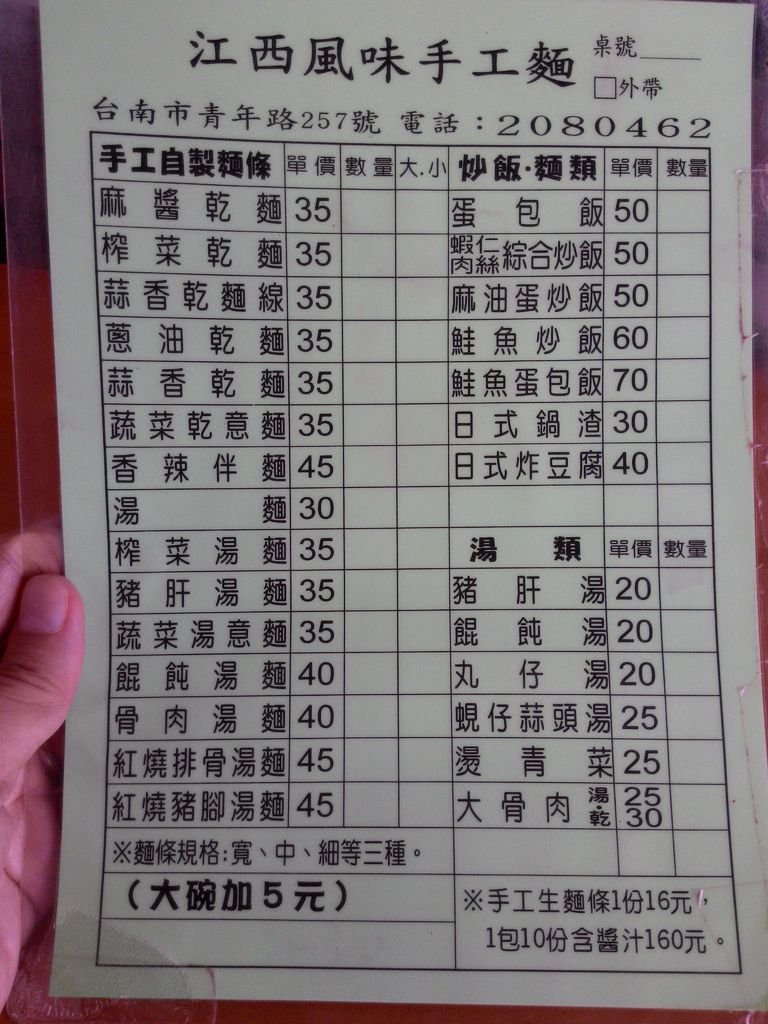 江西風味手工麵
桌號
外帶
台南市青年路257號 電話：2080462
手工自製麵條 單價 數量 大.小
麻醬乾麵 35
榨菜乾麵 35
蒜香乾麵線 35
蔥油乾麵 35
蒜香乾麵 35
蔬菜乾意麵 35
香辣伴麵 45
湯麵 30
榨菜湯麵 35
豬肝湯麵 35
蔬菜湯意麵 35
餛飩湯麵 40
骨肉湯麵 40
紅燒排骨湯麵 45
紅燒豬腳湯麵 45
※麵條規格:寬、中、細等三種。
(大碗加5元)
炒飯·麵類 單價 數量
蛋包飯 50
蝦仁肉絲綜合炒飯 50
麻油蛋炒飯 50
鮭魚炒飯 60
鮭魚蛋包飯 70
日式鍋渣 30
日式炸豆腐 40
湯類 單價 數量
豬肝湯 20
餛飩湯 20
丸仔湯 20
蜆仔蒜頭湯 25
燙青菜 25
大骨肉 湯·乾 25 30
※手工生麵條1份16元，
1包10份含醬汁160元。